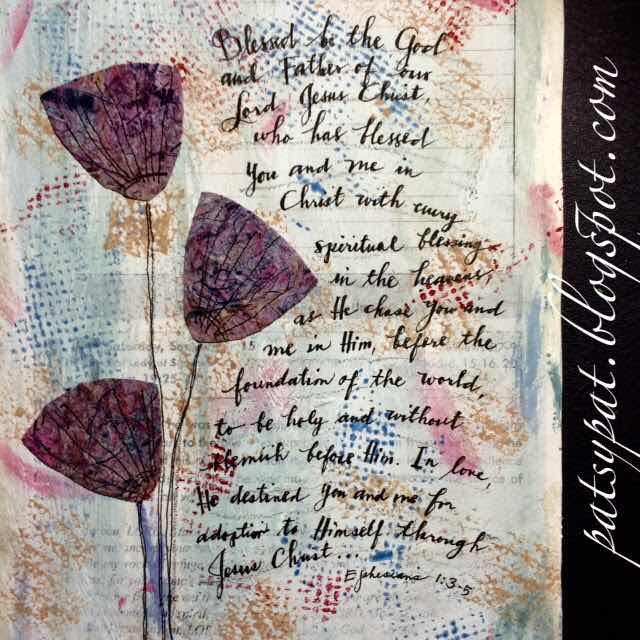 Blessed be the God
and Father of our
Lord Jesus Christ,
who has blessed
you and me in
Christ with every
spiritual blessing
in the heavens,
as He chose you and
me in Him, before the
foundation of the world,
to be holy and without
blemish before Him. In love,
He destined you and me for
adoption to Himself through
Jesus Christ...
Ephesians 1:3-5
patsypat.blogspot.com